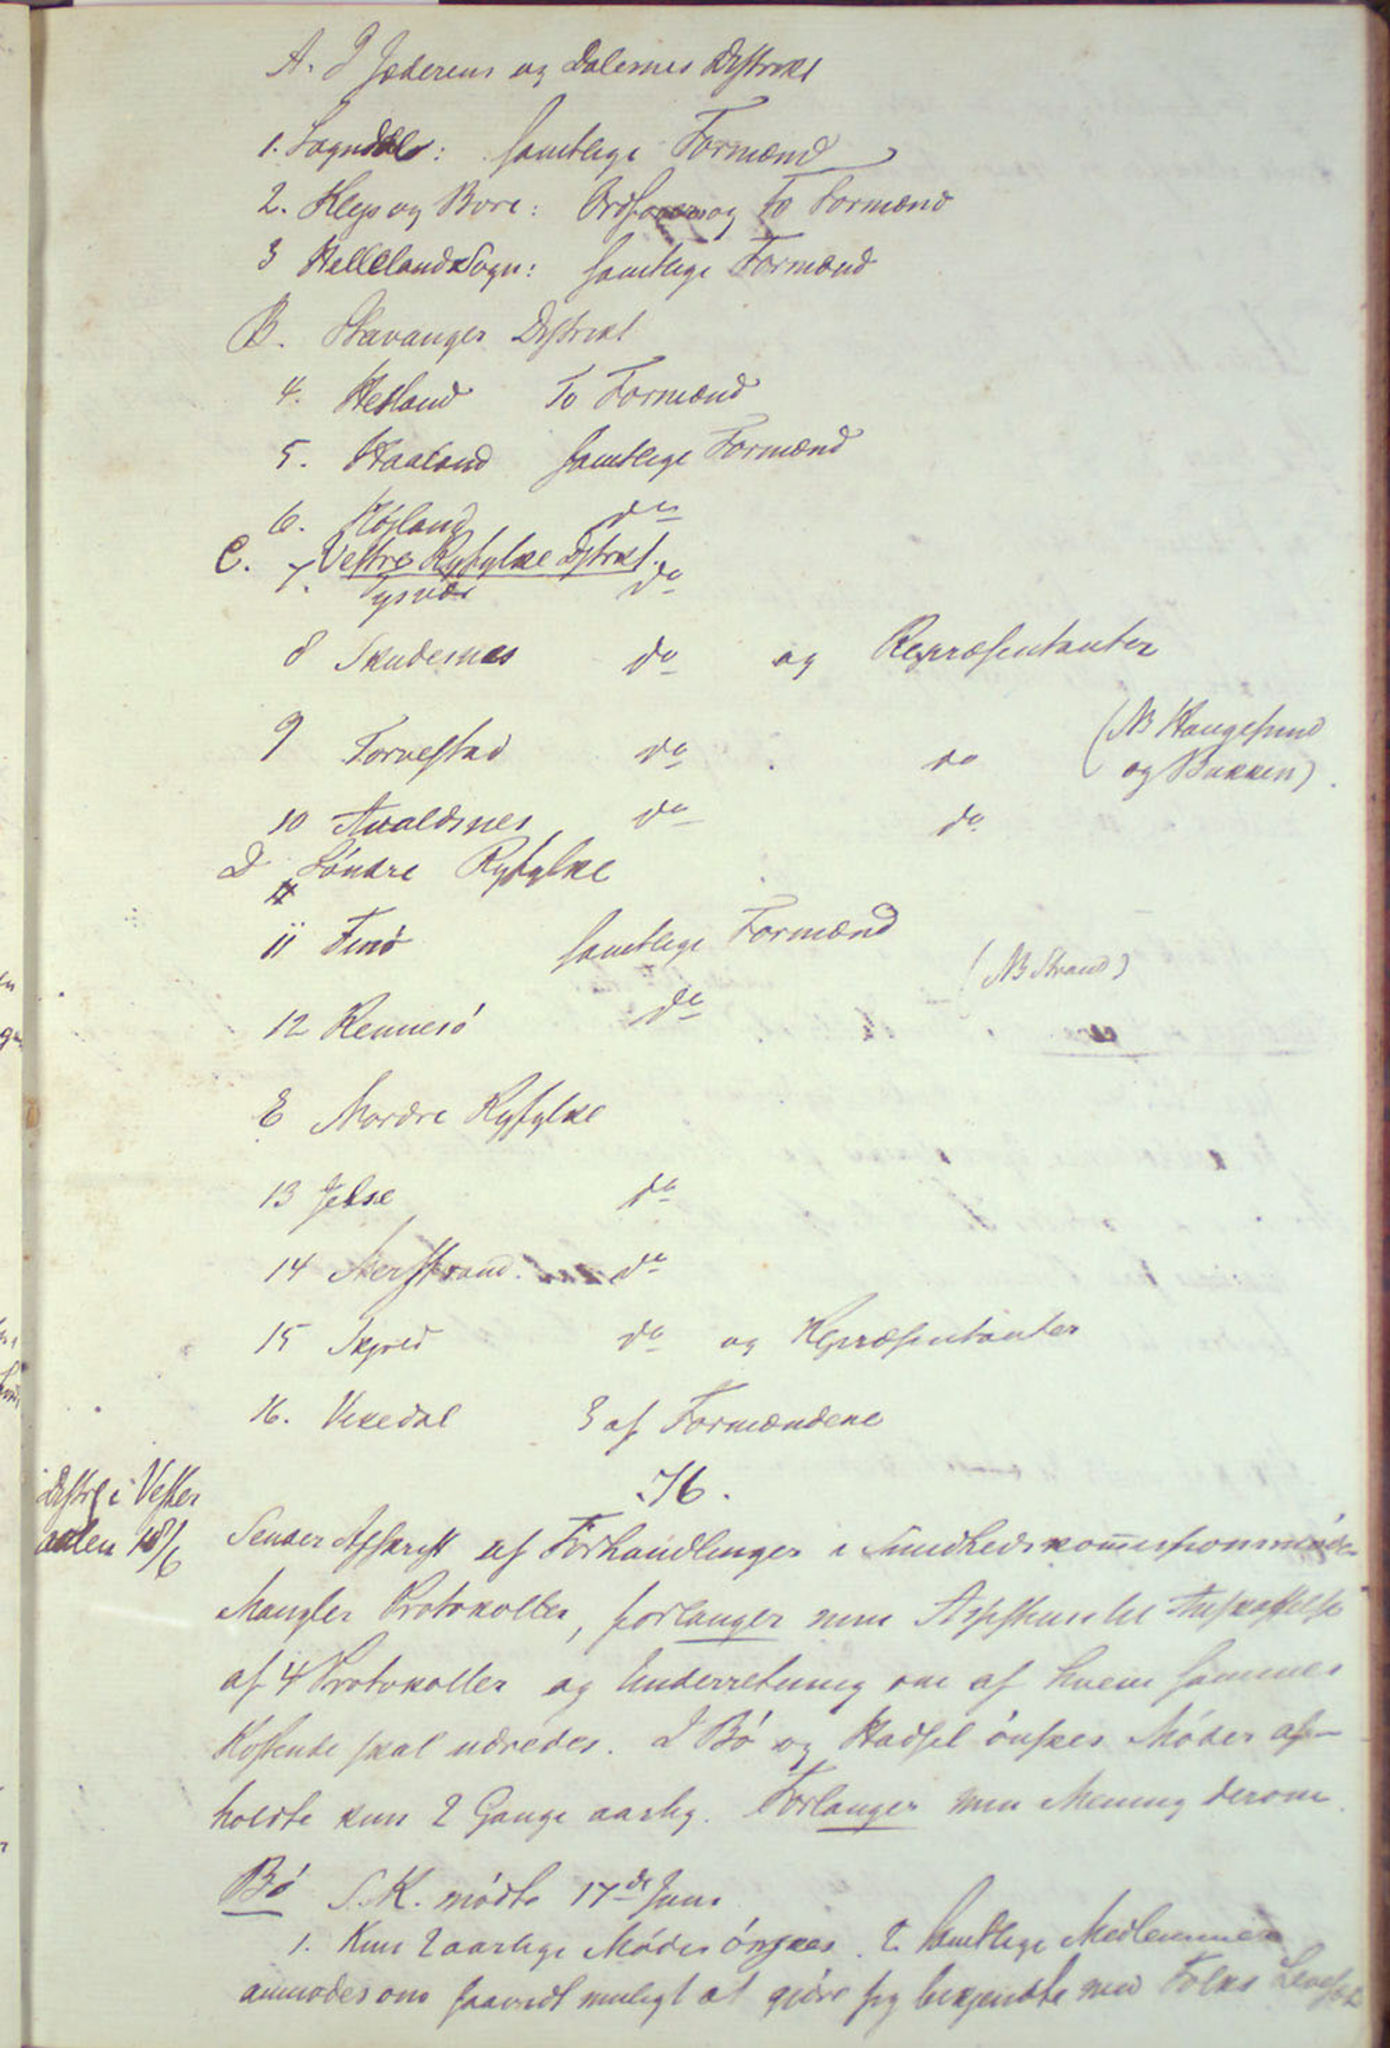 A. I Jæderens og Dalernes Distrikt
1. Sogndal: samtlige Formænd
2. Klep og Bore: Ordfører og to Formænd
3 Helleland Sogn: samtlige Formænd
B. Stavanger Distrikt
4. Hetland To Formænd
5. Haaland samtlige Formænd
6. Høiland do
C. Vestre Ryfylke Distrikt.
7. Tysvær do
8 Skudesnes do og Repræsentanter
9 Torvestad do do (NB Haugesund
og Bukken).
10 Avaldsnes do do
D Söndre Ryfylke
11 Finö samtlige Formænd
(NB Strand)
12 Rennesö do
E Nordre Ryfylke
13 Jelse do
14 Nerstrand. do
15 Skjold do og Repræsentanter
16. Vikedal 3 af Formændene
76.
Distrl i Vester
aalen 18/6
Sender Afskrift af Forhandlinger i Sundhedskommissionerne
Mangler Protokoller, forlanger min Assistance til Anskaffelse
af 4 Protokoller og Underretning om af hvem sammes
Kostende skal udredes. I Bö og Hadsel önskes Möder af-
holdte kun 2 Gange aarlig. Forlanger min Mening derom.
Bö S.K. mödte 17de Juni
1. Kun 2 aarlige Möder önskes. 2 samtlige Medlemmer
anmodes om saavidt muligt at gjöre sig bekjendte med Folks